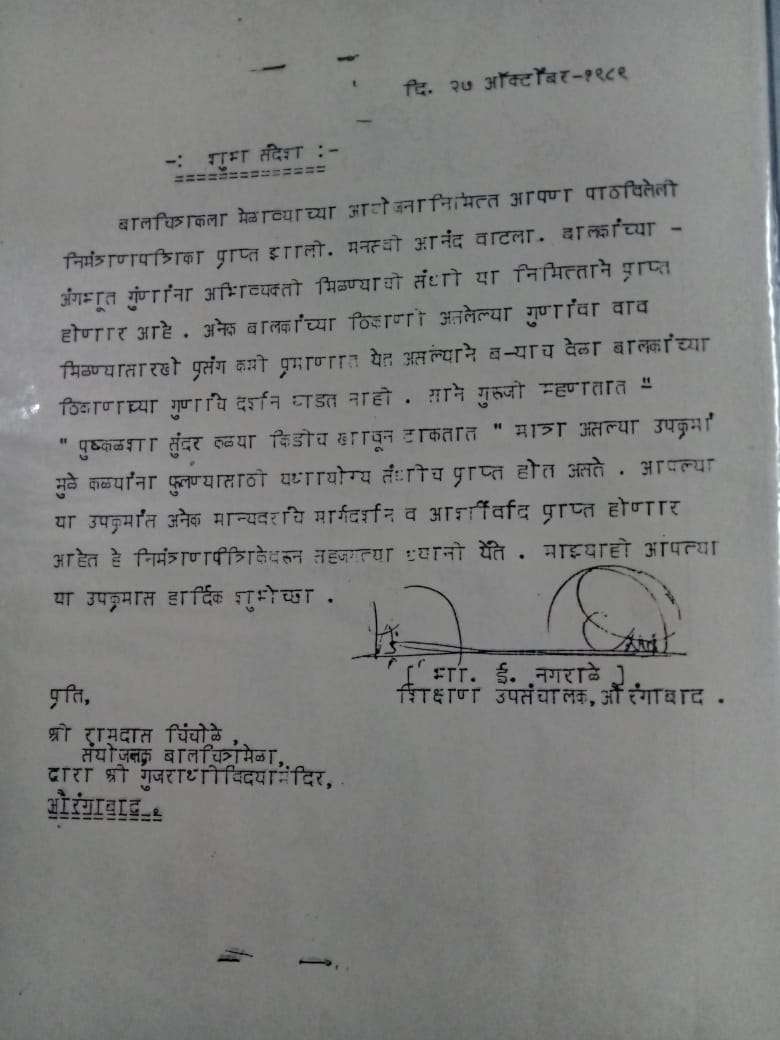 दि. २७ ऑक्टोंबर-१९८९
-: शुभ संदेश :-
बालचित्रकला मेळाव्याच्या आयोजनानिमित्त आपण पाठविलेली
निमंत्रणपत्रिका प्राप्त झाली. मनस्वी आनंद वाटला. बालकांच्या -
अंगभूत गुंणांना अभिव्यक्ती मिळण्याची संधी या निमित्ताने प्राप्त
होणार आहे . अनेक बालकांच्या ठिकाणी असलेल्या गुणांवा वाव
मिळण्यासारखे प्रसंग कमी प्रमाणात येत असल्याने ब-याच वेळा बालकांच्या
ठिकाणाच्या गुणांचे दर्शन घडत नाही . साने गुरूजी म्हणतात "
" पुष्कळशा सुंदर कळया किडीच खावून टाकतात " मात्र असल्या उपक्रमां
मुळे कळयांना फुलण्यासाठी यथायोग्य संधीच प्राप्त होत असते . आपल्या
या उपक्रमांत अनेक मान्यवरांचे मार्गदर्शन व आर्शीर्वाद प्राप्त होणार
आहेत हे निमंत्रणपत्रिकेवरून सहजगत्या ध्यानी येते . माझ्याही आपल्या
या उपक्रमास हार्दिक शुभेच्छा .
[ भा. ई. नगराळे ]
शिक्षण उपसंचालक, औरंगाबाद .
प्रति,
श्री रामदास चिंचोळे ,
संयोजक बालचित्रमेळा,
द्वारा श्री गुजराथीविदयामंदिर,
औरंगाबाद .